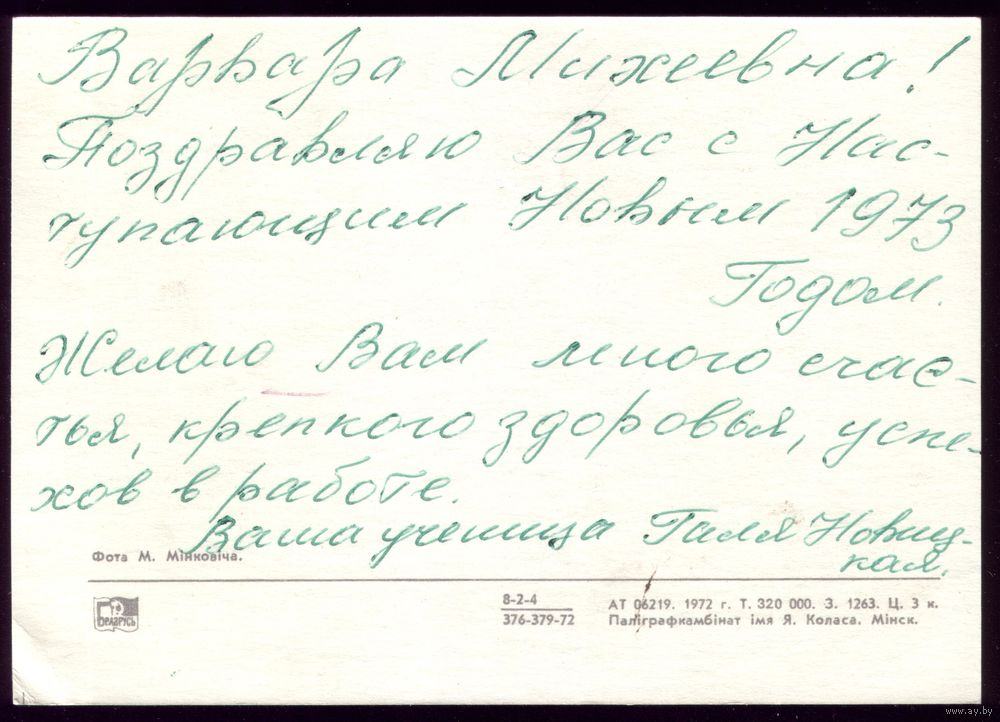 Варвара Михеевна!
Поздравляю Вас с Нас-
тупающим Новым 1973
Годом.
Желаю Вам много счас-
тья, крепкого здоровья, успе-
хов в работе.
Ваша ученица Галя Новиц-
кая.
Фота М. Мінковіча.
БЕЛАРУСЬ
8-2-4
376-379-72
АТ 06219. 1972 г. Т. 320 000. З. 1263. Ц. 3 к.
Паліграфкамбінат імя Я. Коласа. Мінск.
www.ay.by